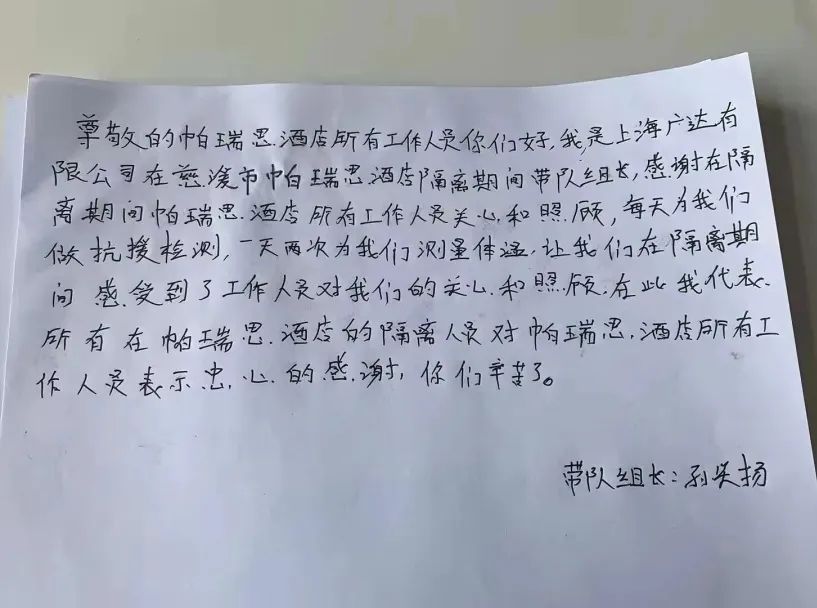 尊敬的帕瑞思酒店所有工作人员你们好,我是上海广达有
限公司在慈溪市帕瑞思酒店隔离期间带队组长,感谢在隔
离期间帕瑞思酒店所有工作人员关心和照顾,每天为我们
做抗援检测,一天两次为我们测量体温,让我们在隔离期
间感受到了工作人员对我们的关心和照顾,在此我代表
所有在帕瑞思酒店的隔离人员对帕瑞思酒店所有工
作人员表示忠心的感谢,你们辛苦了。
带队组长:孙 扬